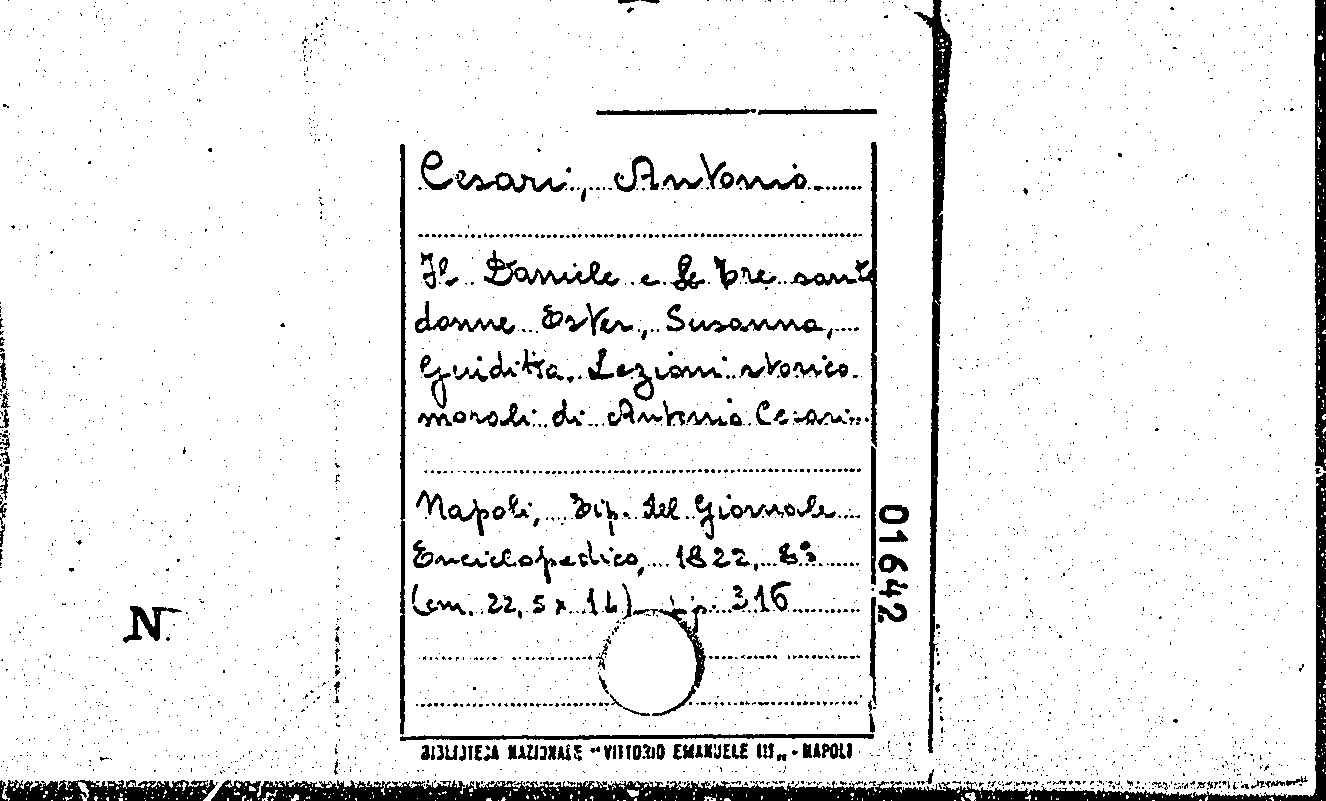 Cesari, Antonio.
Il Daniele e le tre sante
donne Ester, Susanna,
Giuditta. Lezioni storico
morali di Antonio Cesari...
Napoli, Tip. del Giornale
Enciclopedico, 1822, 8º
(cm. 22,5 x 14) pp. 316
01642
N
BIBLIOTECA NAZIONALE "VITTORIO EMANUELE III" - NAPOLI